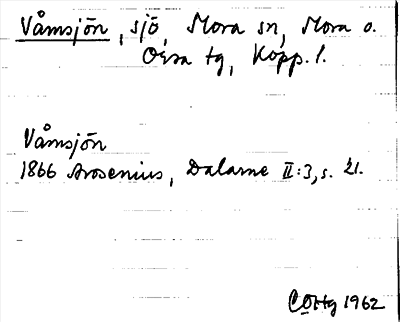 Våmsjön, sjö, Mora sn, Mora o.
Orsa tg, Kopp. l.
Våmsjön
1866 Arosenius, Dalarne II:3, s. 21.
1962